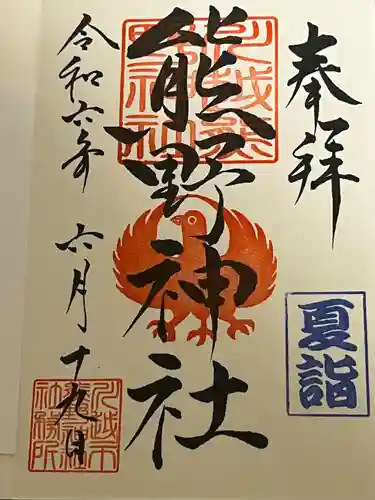 奉拝
夏詣
熊野神社
令和六年 六月 十九日